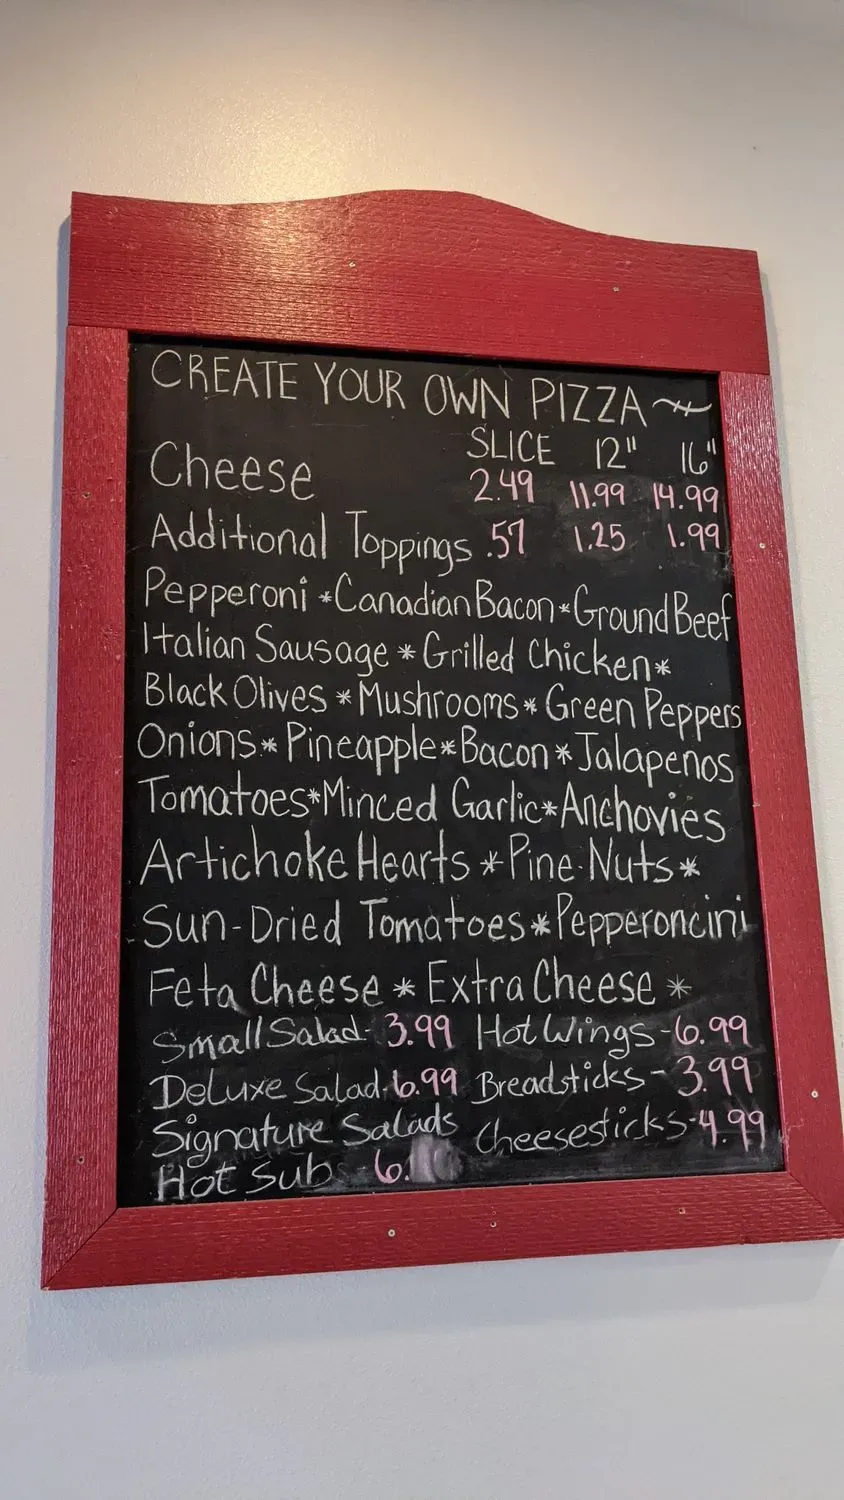 CREATE YOUR OWN PIZZA
SLICE 12" 16"
Cheese 2.49 11.99 14.99
Additional Toppings .57 1.25 1.99
Pepperoni * Canadian Bacon * Ground Beef
Italian Sausage * Grilled Chicken *
Black Olives * Mushrooms * Green Peppers
Onions * Pineapple * Bacon * Jalapenos
Tomatoes * Minced Garlic * Anchovies
Artichoke Hearts * Pine Nuts *
Sun-Dried Tomatoes * Pepperoncini
Feta Cheese * Extra Cheese *
Small Salad - 3.99 Hot Wings - 6.99
Deluxe Salad - 6.99 Breadsticks - 3.99
Signature Salads Cheesesticks - 4.99
Hot Subs 6.